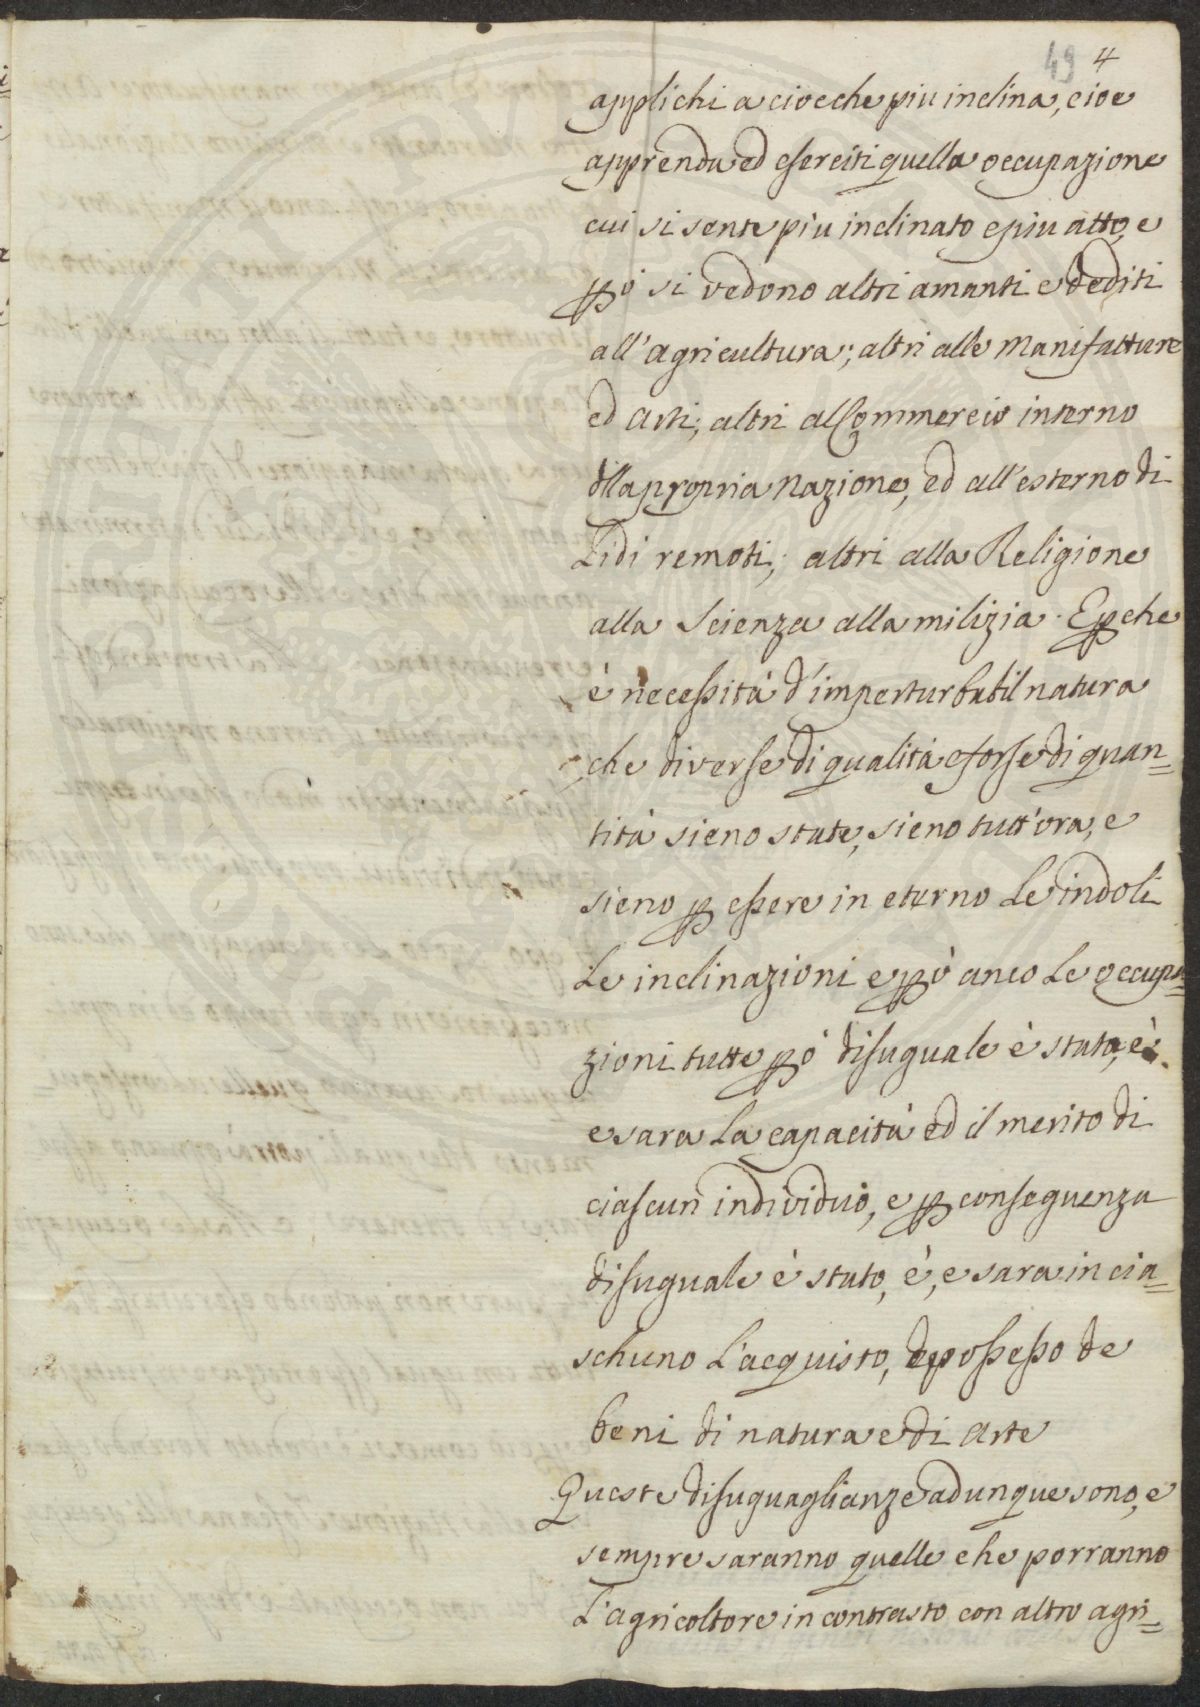 49 4
applichi a cioeche piu inclina, cioe
apprenda ed eserciti quella occupazione
cui si sente piu inclinato e piu atto, e
ꝑò si vedono altri amanti e dediti
all'agricultura; altri alle manifatture
ed arti; altri al Commercio interno
dlla propria nazione, ed all'esterno di
Lidi remoti; altri alla Religione
alla Scienza alla milizia. E ꝑche
è necessità d'imperturbabil natura
che diverse di qualità e forse di quan=
tità sieno state, sieno tutt'ora, e
sieno ꝑ essere in eterno Le indoli
Le inclinazioni e ꝑò anco Le occupa=
zioni tutte ꝑò disuguale è stata, è
e sara La capacità ed il merito di
ciascun individuo, e ꝑ conseguenza
disuguale è stato, è, e sara in cia=
schuno L'acquisto, possesso de
beni di natura e di Arte
Queste disuguaglianze adunque sono, e
sempre saranno quelle che porranno
L'agricoltore in contrasto con altro agri=